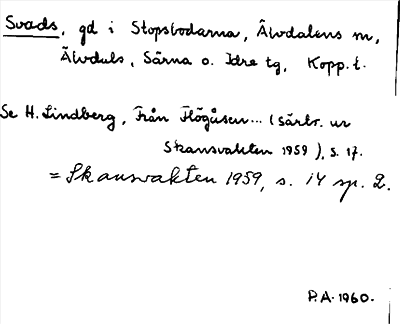 Svads, gd i Stopsbodarna, Älvdalens sn,
Älvdals, Särna o. Idre tg, Kopp. l.
Se H. Lindberg, Från Flögåsen... (särtr. ur
Skansvakten 1959), s. 17.
= Skansvakten 1959, s. 14 sp. 2.
P.A. 1960.